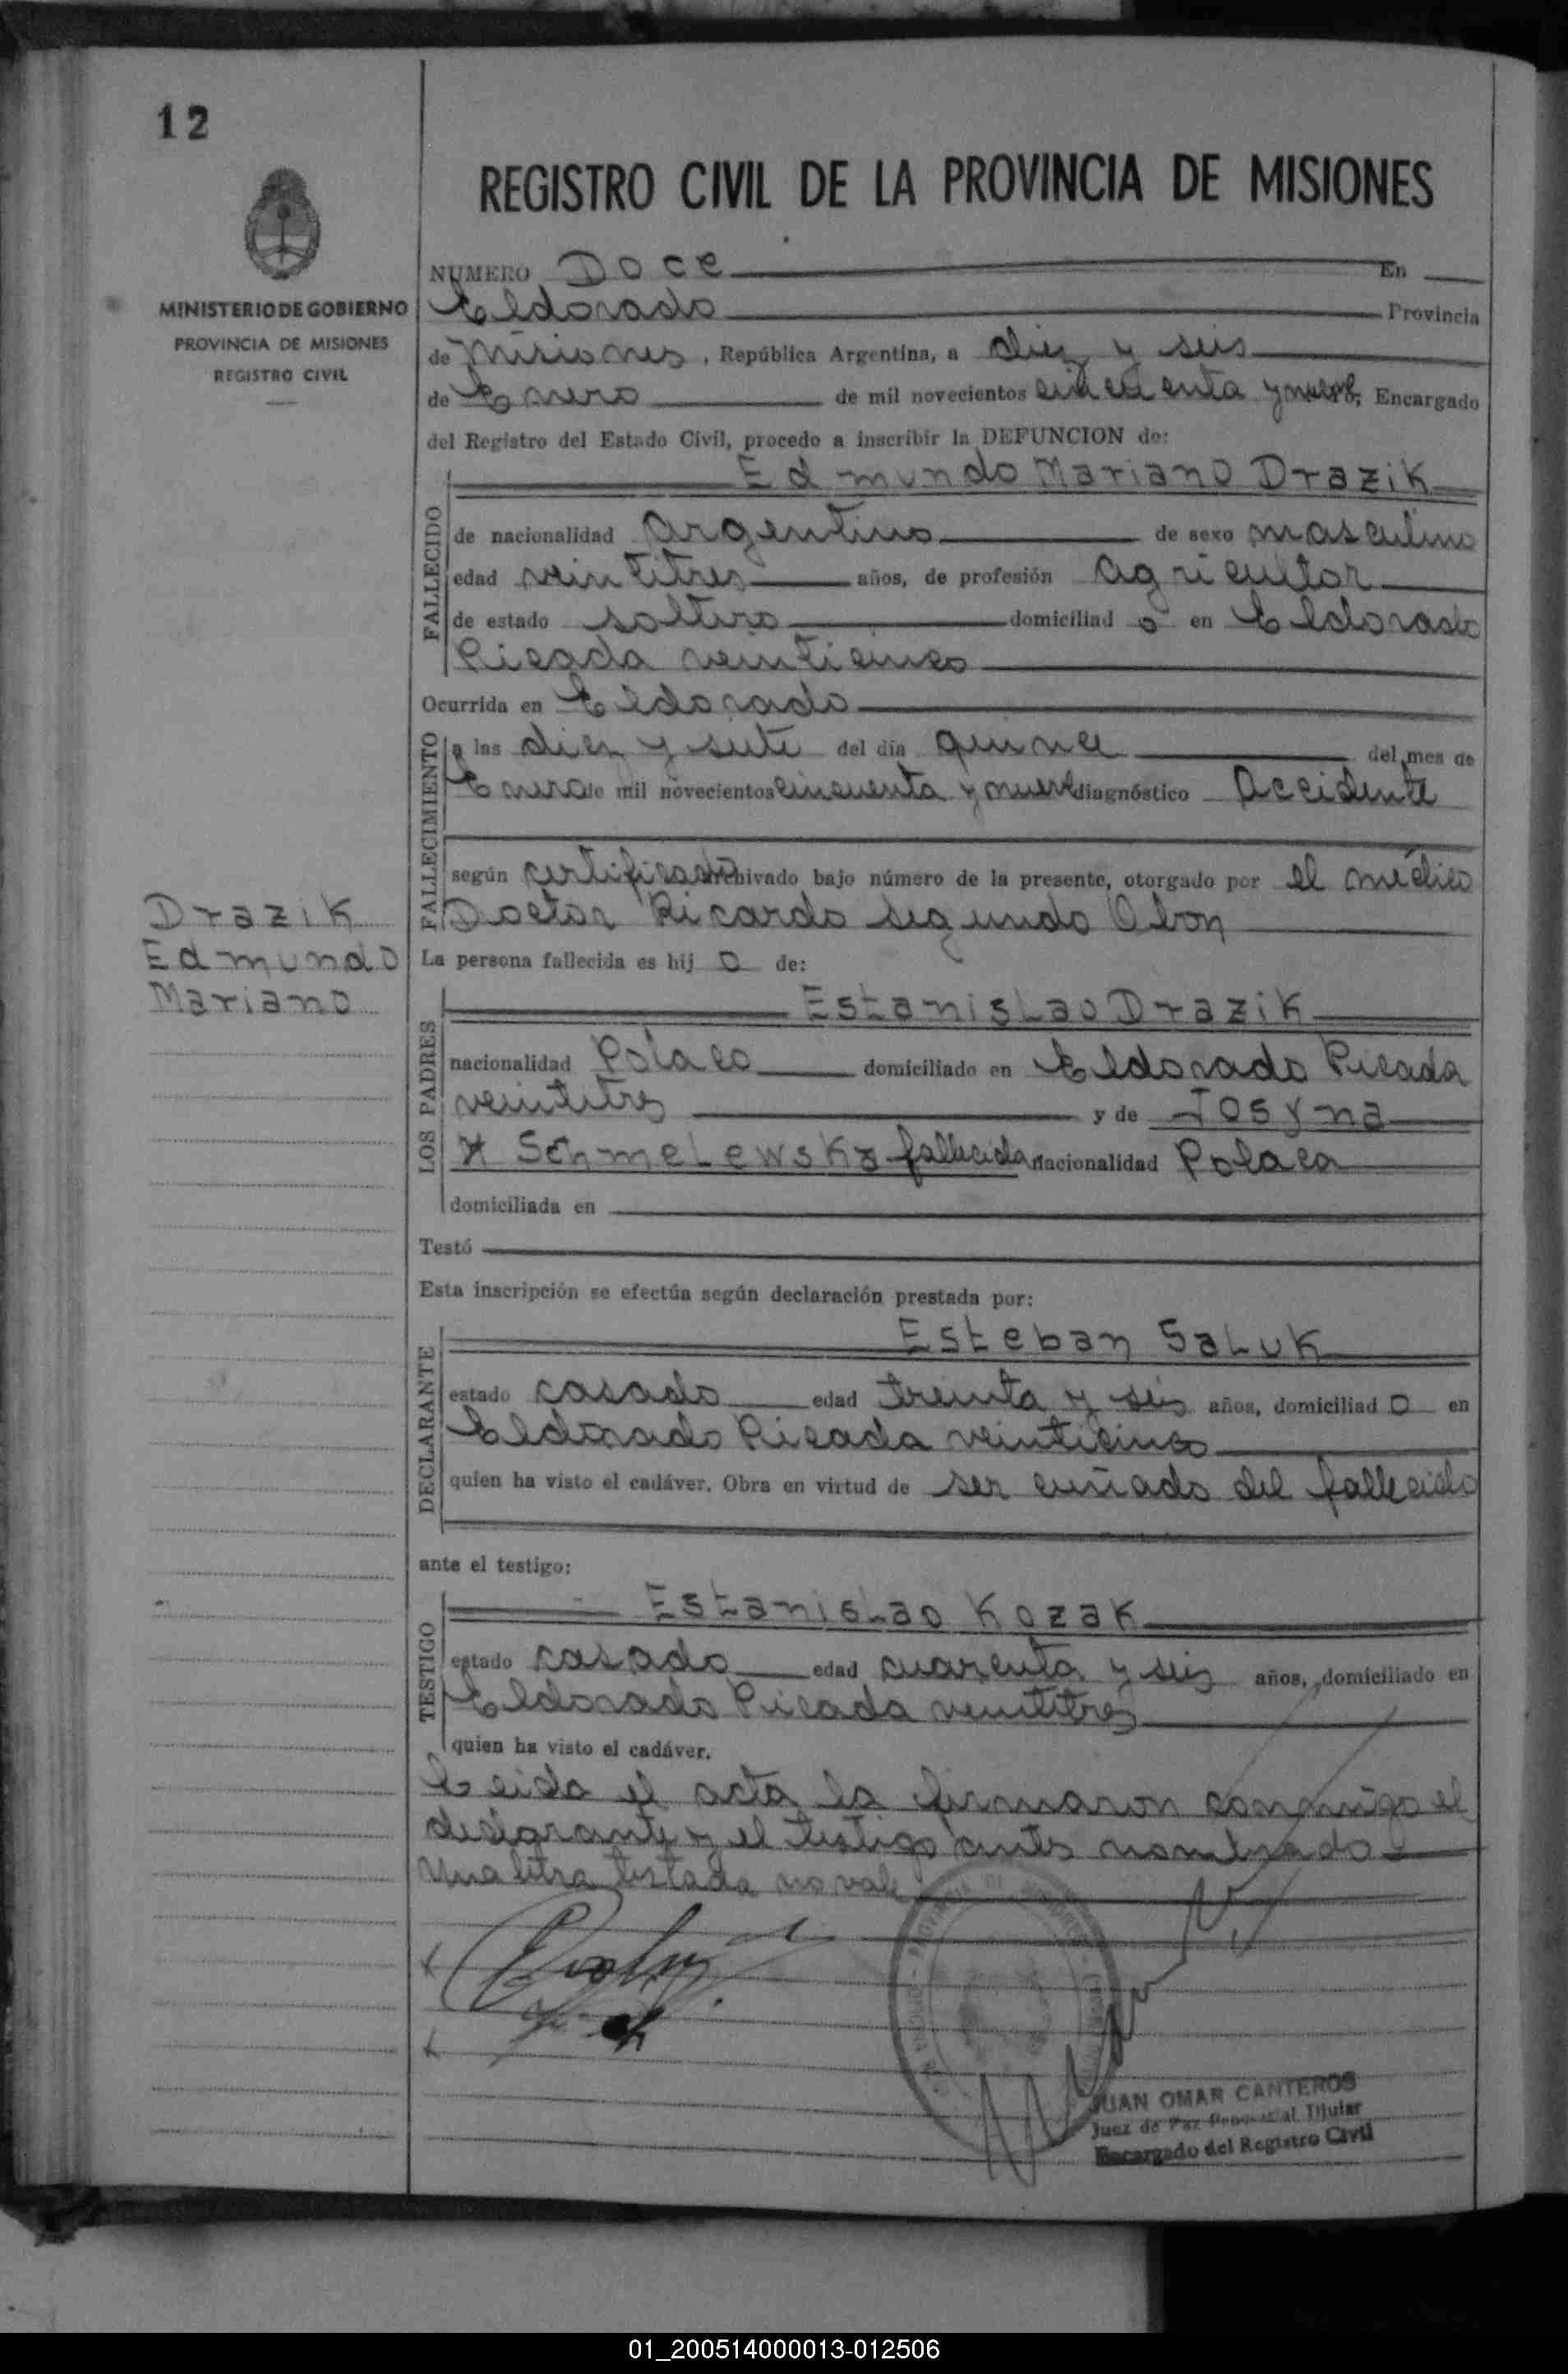 12
MINISTERIO DE GOBIERNO
PROVINCIA DE MISIONES
REGISTRO CIVIL
REGISTRO CIVIL DE LA PROVINCIA DE MISIONES
NUMERO Doce En
Eldorado Provincia
de Misiones, República Argentina, a diez y seis
de Enero de mil novecientos cincuenta y nueve, Encargado
del Registro del Estado Civil, procedo a inscribir la DEFUNCION de:
Edmundo Mariano Drazik
FALLECIDO
de nacionalidad argentino de sexo masculino
edad veintitres años, de profesión agricultor
de estado soltero domiciliad o en Eldorado
Picada veinticinco
Ocurrida en Eldorado
FALLECIMIENTO
a las diez y siete del día quince del mes de
Enero de mil novecientos cincuenta y nueve diagnóstico Accidente
según certificado archivado bajo número de la presente, otorgado por el médico
Doctor Ricardo Segundo Obon
Drazik
Edmundo
Mariano
La persona fallecida es hij o de:
LOS PADRES
Estanislao Drazik
nacionalidad Polaco domiciliado en Eldorado Picada
veintitres y de Josyna
Schmelewska fallecida nacionalidad Polaca
domiciliada en
Testó
Esta inscripción se efectúa según declaración prestada por:
DECLARANTE
Esteban Saluk
estado casado edad treinta y seis años, domiciliad o en
Eldorado Picada veinticinco
quien ha visto el cadáver. Obra en virtud de ser cuñado del fallecido
ante el testigo:
TESTIGO
Estanislao Kozak
estado casado edad cuarenta y seis años, domiciliado en
Eldorado Picada veintitres
quien ha visto el cadáver.
Leida el acta la firmaron conmigo el
declarante y el testigo antes nombrado
Una letra testada no vale
JUAN OMAR CANTEROS
Juez de Paz Titular
Encargado del Registro Civil
01_200514000013-012506